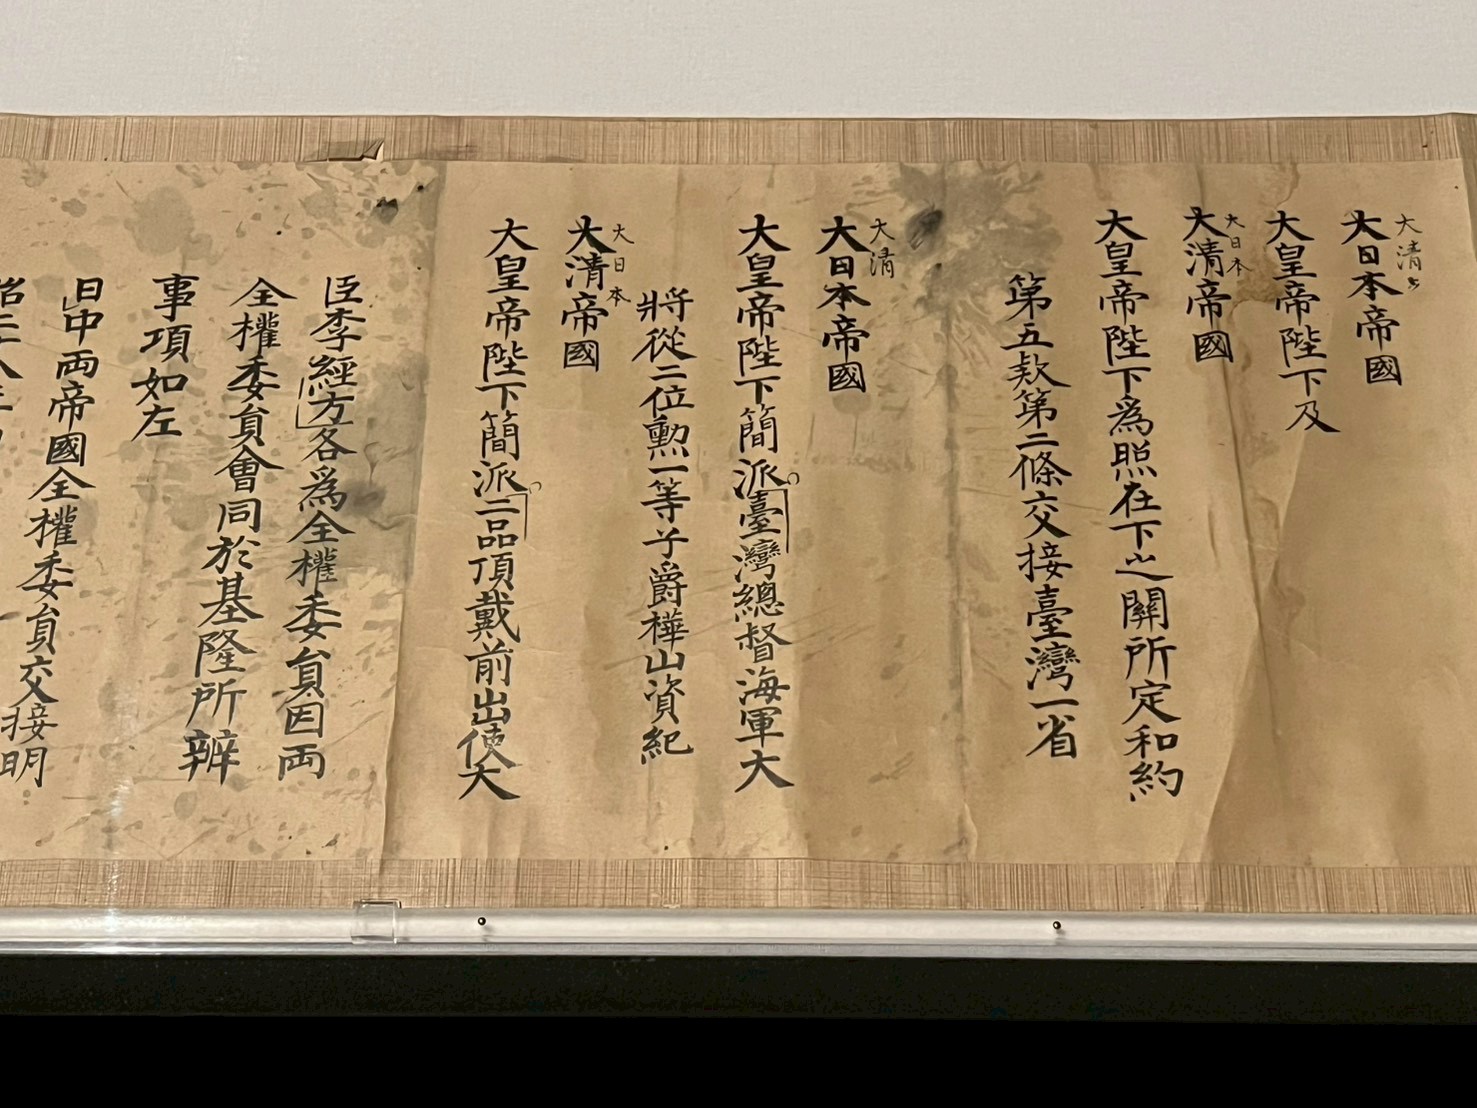 大清
大日本帝國
大皇帝陛下及
大日本
大清帝國
大皇帝陛下為照在下之關所定和約
第五款第二條交接臺灣一省
大清
大日本帝國
大皇帝陛下簡派臺灣總督海軍大
將從二位勲一等子爵樺山資紀
大日本
大清帝國
大皇帝陛下簡派二品頂戴前出使大
臣李經方各為全權委員因両
全權委員會同於基隆所辦
事項如左
日中両帝國全權委員交接明